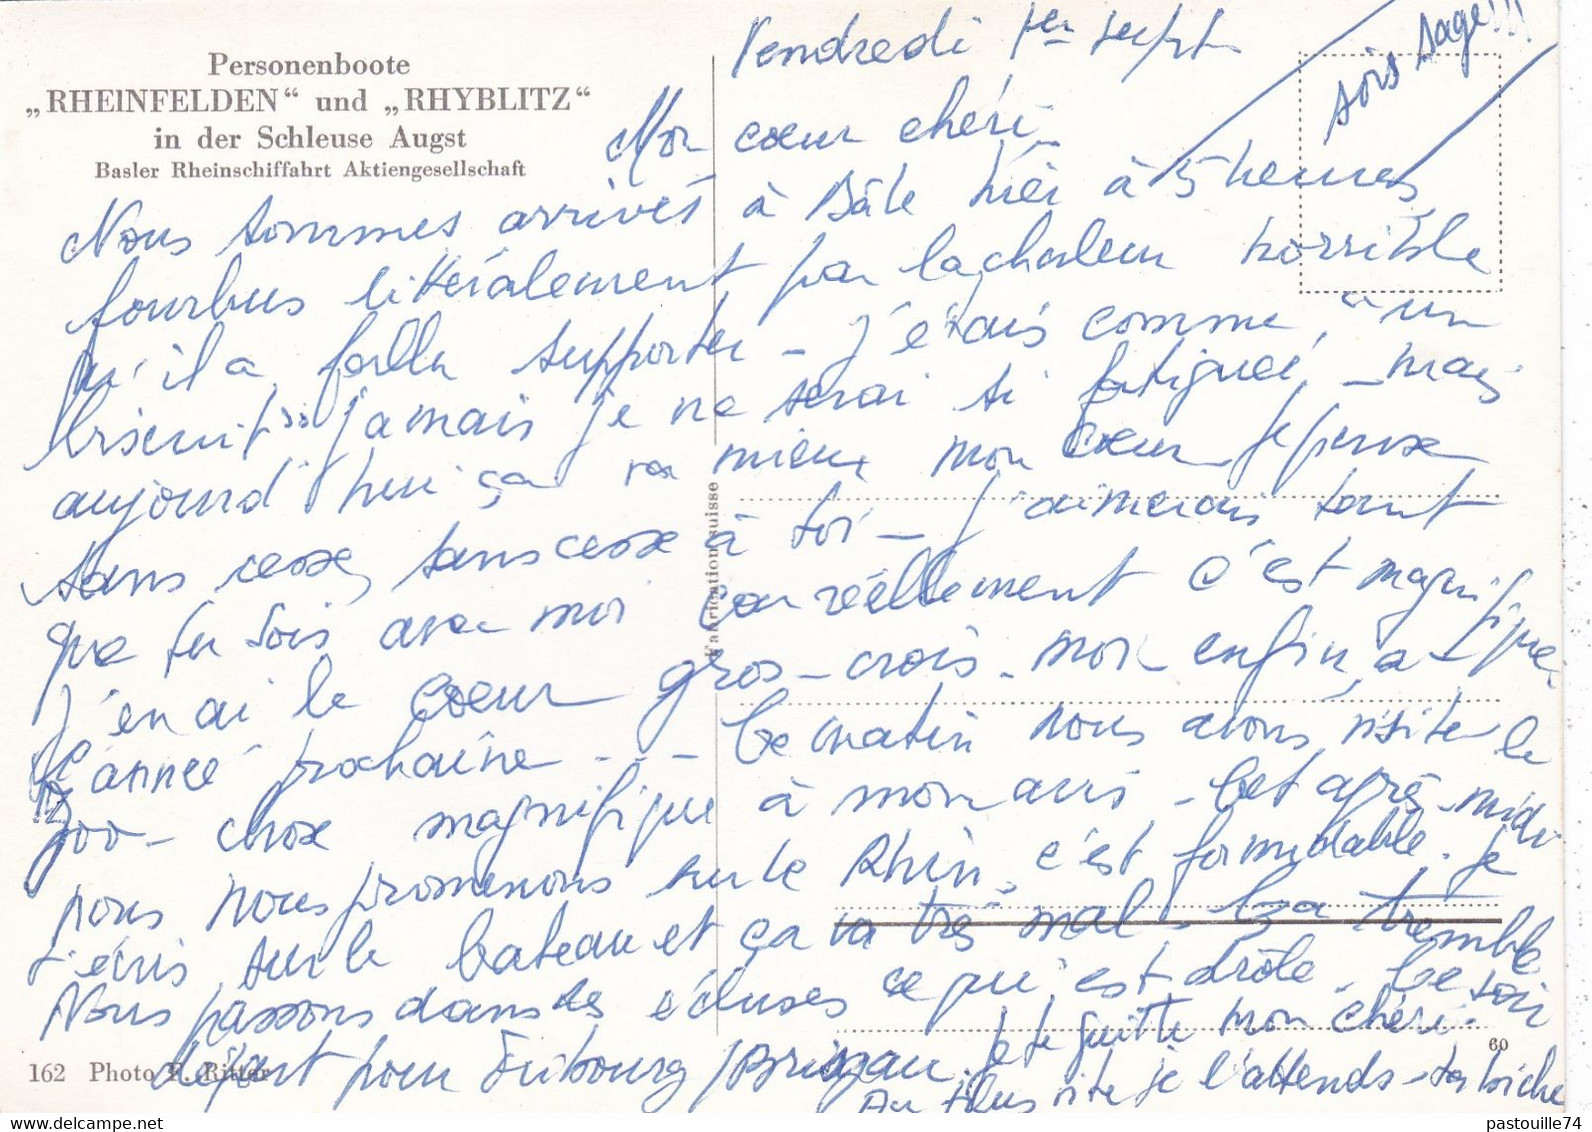 Personenboote
„RHEINFELDEN“ und „RHYBLITZ“
in der Schleuse Augst
Basler Rheinschiffahrt Aktiengesellschaft
sois sage!!!
Vendredi 1er sept
Mon cœur chéri
Nous sommes arrivés à Bâle hier à 5 heures
fourbus littéralement par la chaleur horrible
qu'il a fallu supporter - J'étais comme "un
biscuit" jamais je ne serai si fatiguée, - mais
aujourd'hui ça va mieux mon cœur Je pense
sans cesse, sans cesse à toi - J'aimerais tant
que tu sois avec moi car réellement c'est magnifique
J'en ai le cœur gros - crois-moi enfin à
l'année prochaine - - - Ce matin nous avons visité le
zoo - chose magnifique à mon avis - Cet après-midi
nous nous promenons sur le Rhin, c'est formidable. Je
t'écris sur le bateau et ça va très mal - Ça tremble
Nous passons dans des écluses ce qui est drôle. Ce soir
départ pour Fribourg Brisgau. Je te quitte mon chéri.
Au plus vite je l'attends - ta biche
Fabrication suisse
162 Photo P. Ritter
60
pastouille74